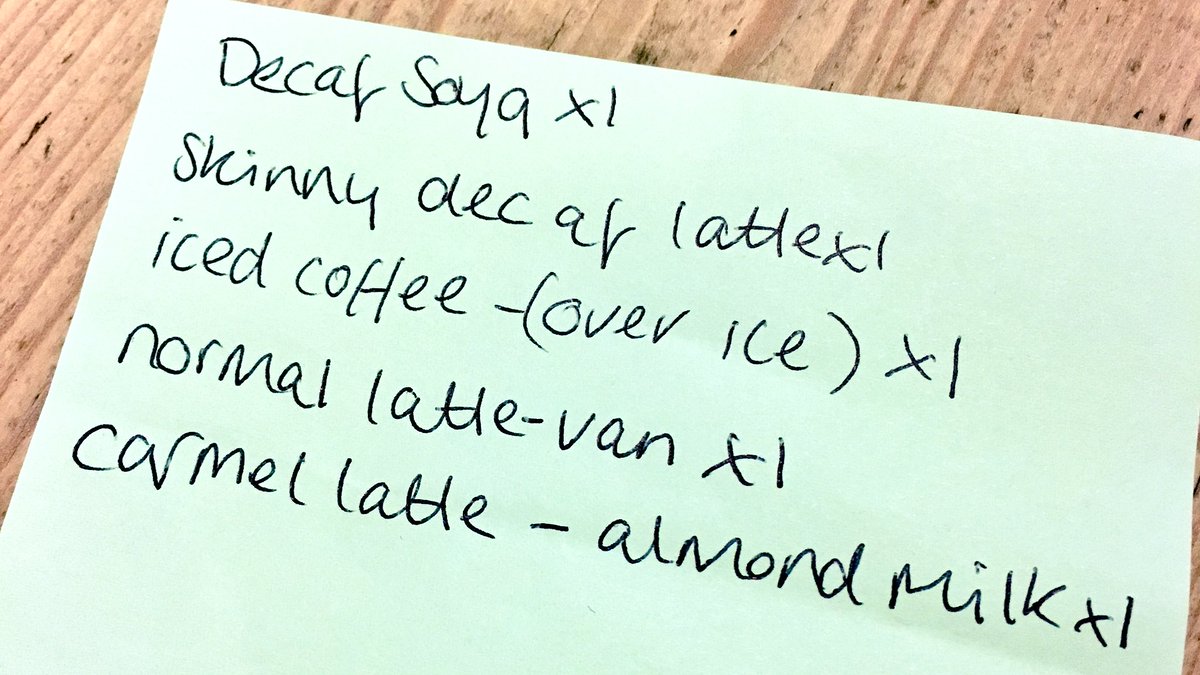 Decaf Soya x1
skinny decaf latte x1
iced coffee - (over ice) x1
normal latte - van x1
carmel latte - almond milk x1